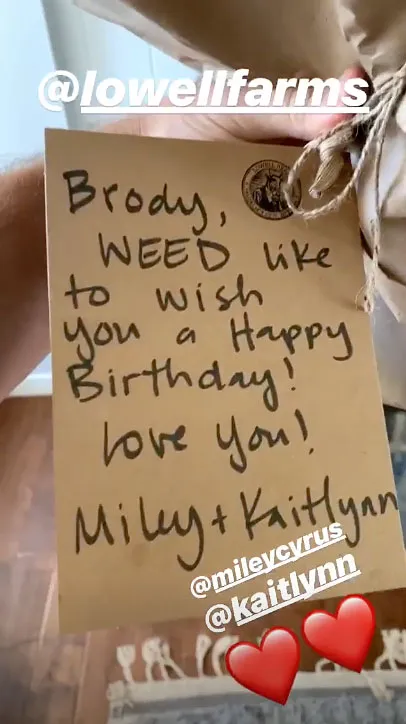 @lowellfarms
Brody,
WEED like
to wish
you a Happy
Birthday!
Love You!
Miley + Kaitlynn
@mileycyrus
@kaitlynn